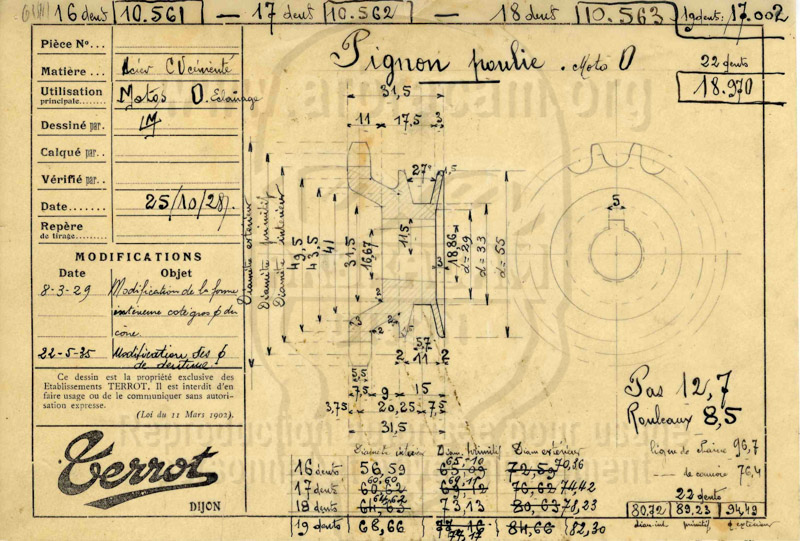 16 dents 10.561 — 17 dents 10.562 — 18 dents 10.563 19 dents: 17.002
22 dents
18.970
Pignon poulie . Moto O
Pièce No...
Matière... Acier CV cémenté
Utilisation principale....... Motos O. Eclairage
Dessiné par. LM
Calqué par..
Vérifié par.
Date....... 25/10/28.
Repère de tirage.........
MODIFICATIONS
Date Objet
8-3-29 Modification de la forme
intérieure coté gros ϕ du
cône.
22-5-35 Modification des ϕ
de denture.
Ce dessin est la propriété exclusive des
Etablissements TERROT. Il est interdit d'en
faire usage ou de le communiquer sans autori-
sation expresse.
(Loi du 11 Mars 1902).
Terrot
DIJON
31,5
11 17,5 3
27° 1,5
Diamètre extérieur
Diamètre primitif
Diamètre intérieur
49,5
43,5
41
31,5
16,67
11,5
3
18,86
d=29
d=33
d=55
5
3 2 2
5,7
2 11 2
5,5
7,5 9 15
3,75 20,25 7,5
31,5
Pas 12,7
Rouleaux 8,5
ligne de chaîne 96,7
— de courroie 76,4
22 dents
80,72 89,23 94,49
diam. int primitif ϕ extérieur
Diamètre intérieur Diam. primitif Diam extérieur
16 dents 56,59 65,10 72,59 70,36
17 dents 60,60 60,62 69,11 69,12 76,62 74,42
18 dents 64,62 64,63 73,13 80,63 78,23
19 dents 68,66 77,16 77,17 84,66 82,30